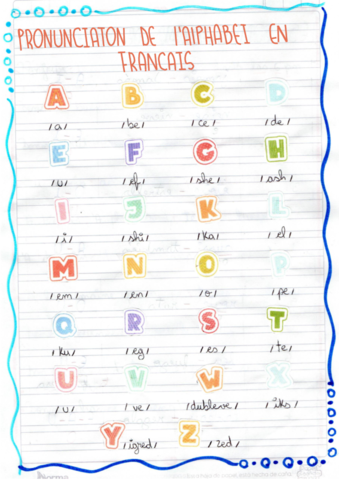 PRONUNCIATON DE l'AlPHABEt EN
FRANCAIS
A B C D
/a/ /be/ /ce/ /de/
E F G H
/u/ /ef/ /she/ /ash/
I J K L
/i/ /shi/ /ka/ /el/
M N O P
/em/ /en/ /o/ /pe/
Q R S T
/ku/ /eg/ /es/ /te/
U V W X
/u/ /ve/ /dubleve/ /iks/
Y /igred/ Z /zed/